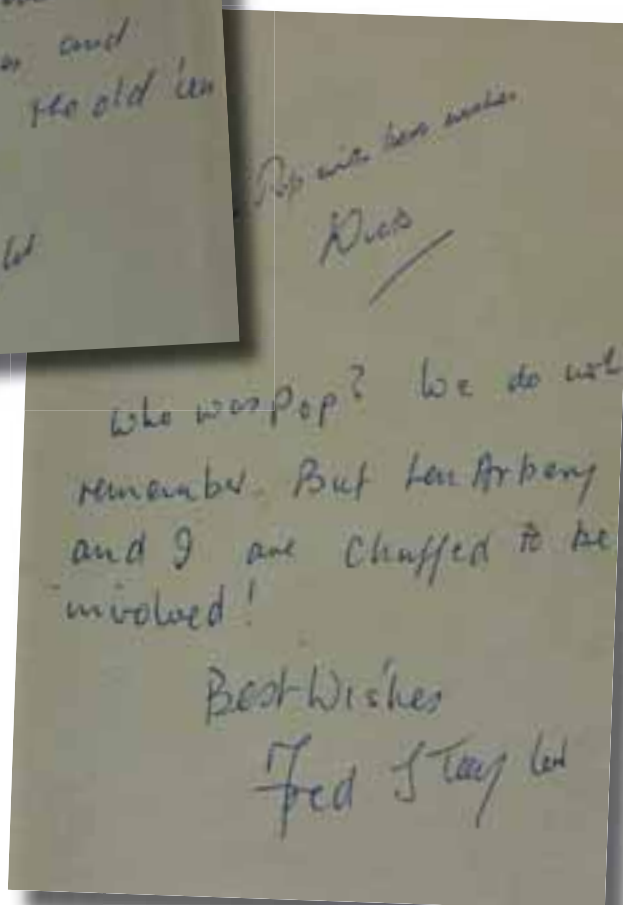 and
the old 'un
Pop with best wishes
who was Pop? We do not
remember. But Len Arbery
and I are Chuffed to be
involved!
Best Wishes
Fred S Taylor